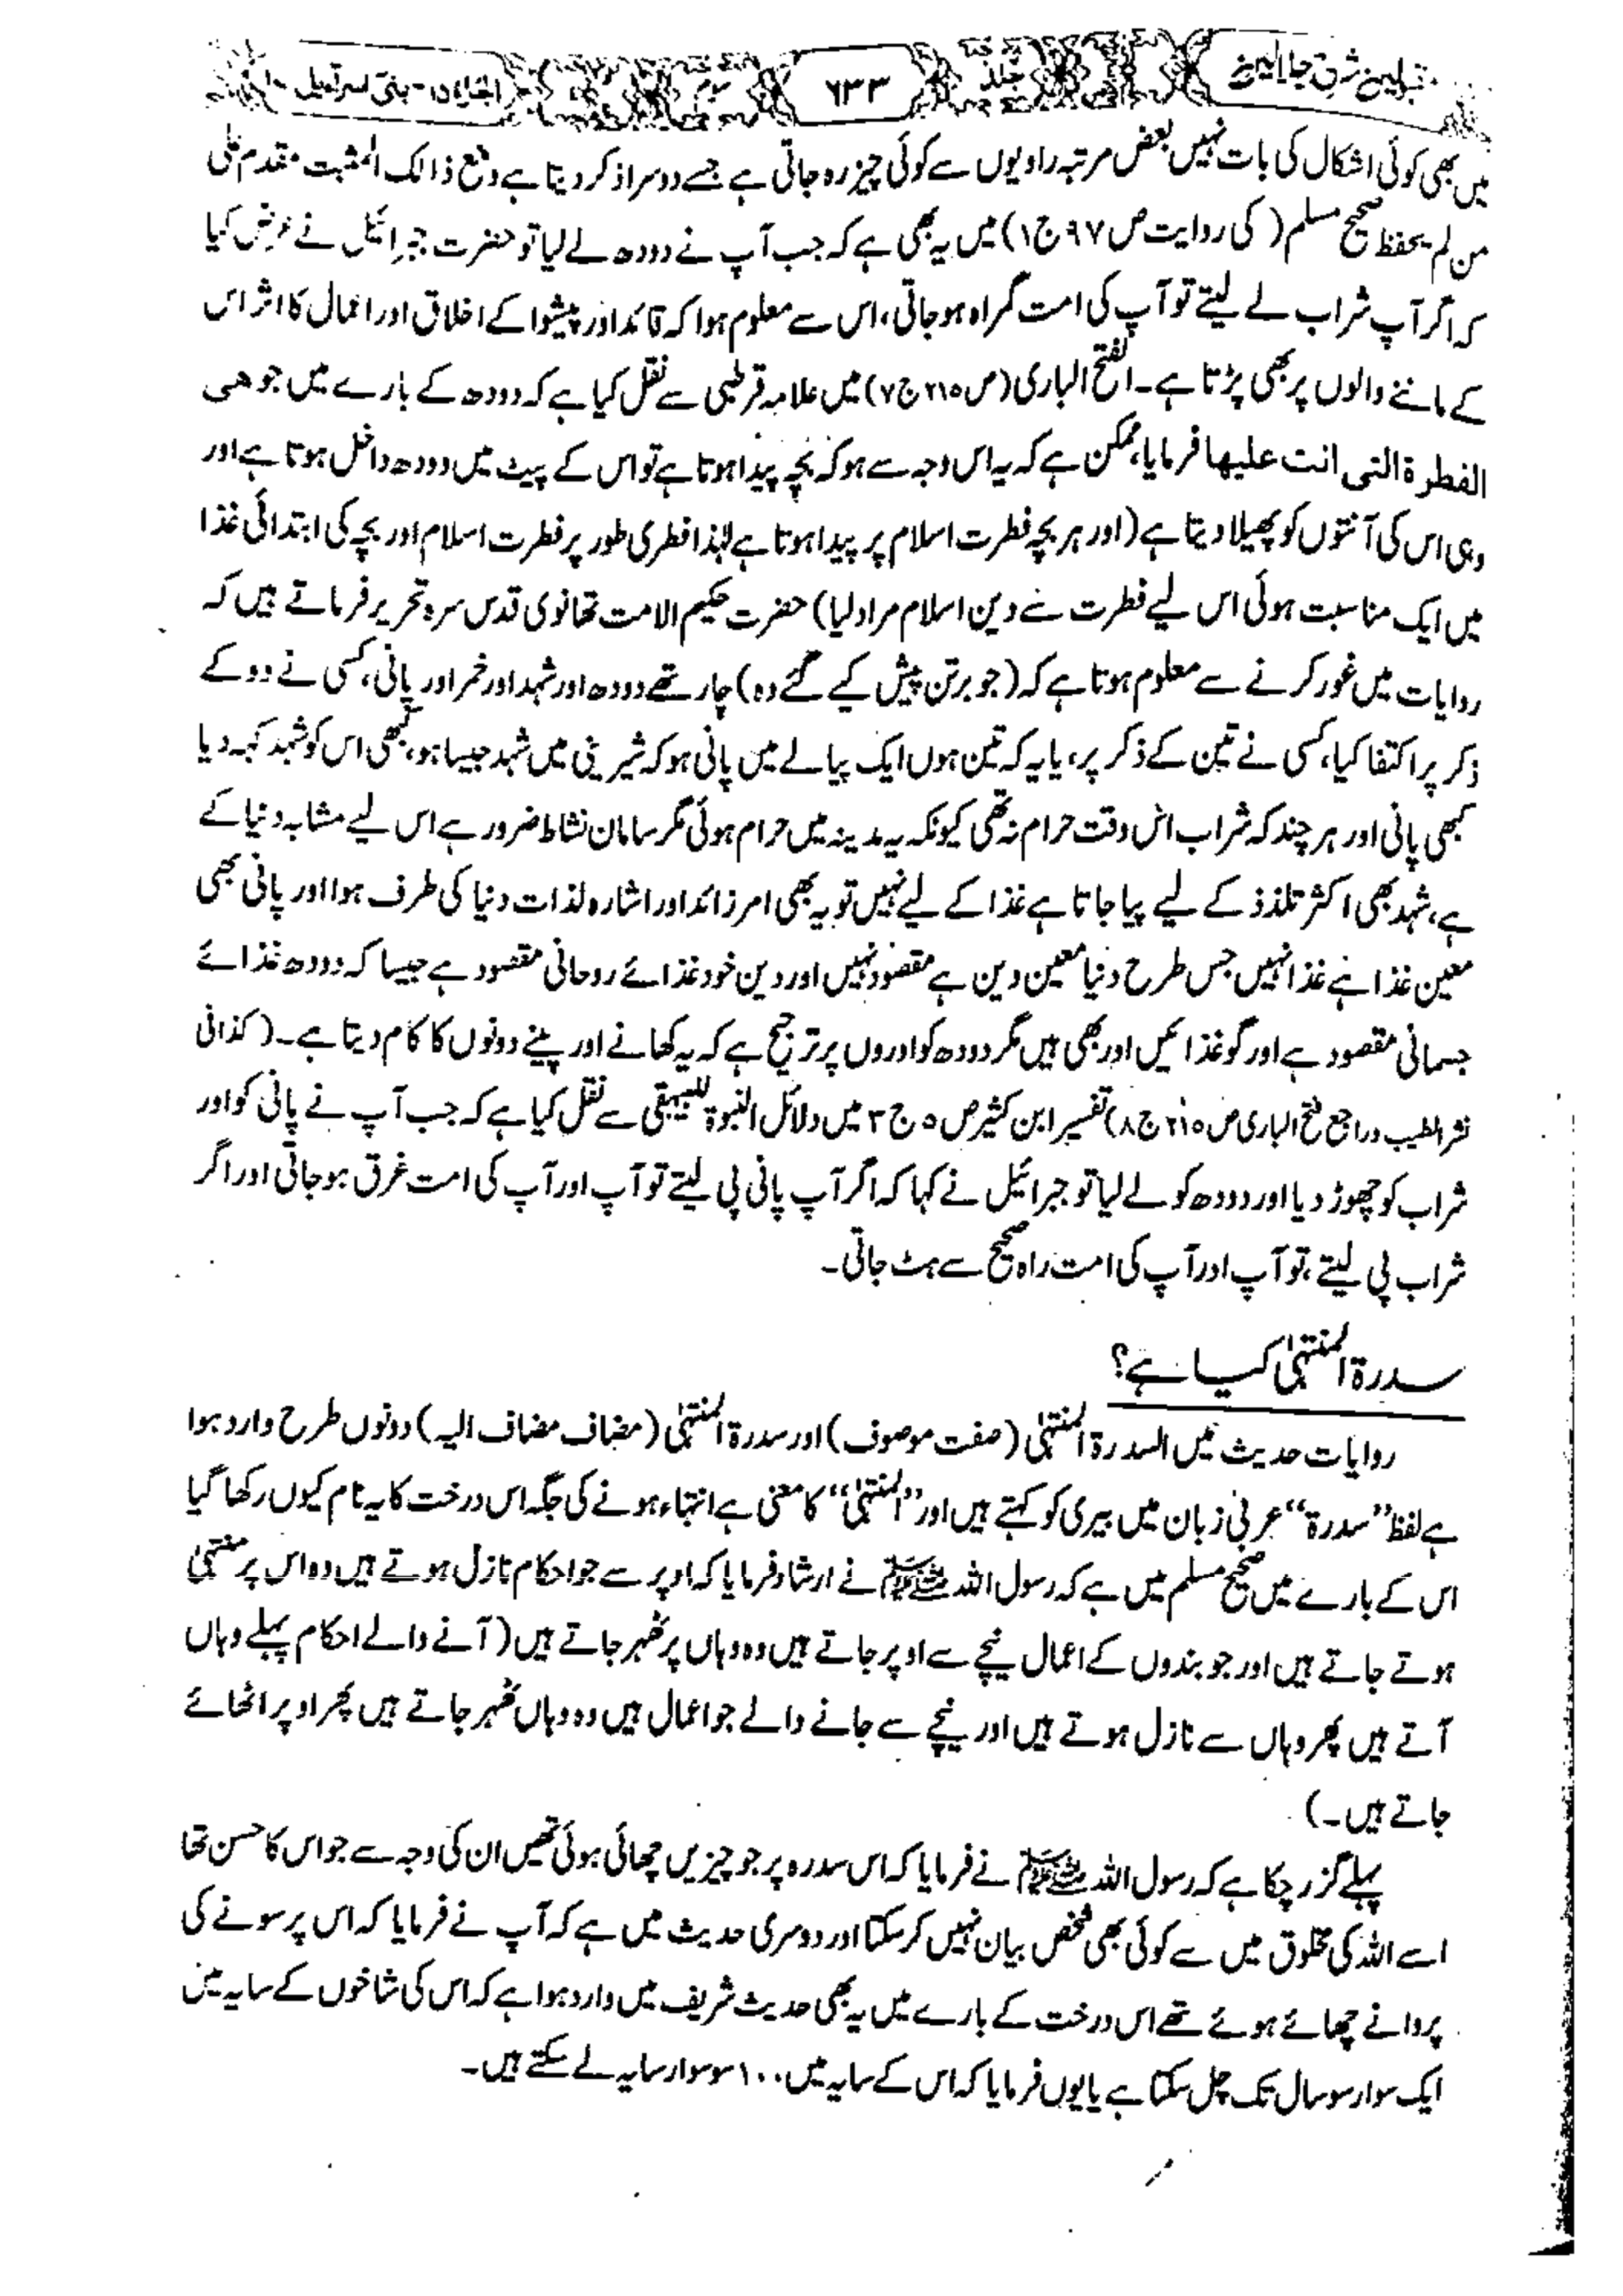 تقبلین شرح جلالین جلد سوم ۶۳۳ الجزء ۱۵ - بنی اسرائیل
میں بھی کوئی اشکال کی بات نہیں بعض مرتبہ راویوں سے کوئی چیز رہ جاتی ہے جسے دوسرا ذکر دیتا ہے و مع ذالک المثبت مقدم علی
من لم یحفظ صحیح مسلم (کی روایت ص ۹۷ ج ۱) میں یہ بھی ہے کہ جب آپ نے دودھ لے لیا تو حضرت جبرائیل نے عرض کیا
کہ اگر آپ شراب لے لیتے تو آپ کی امت گمراہ ہو جاتی، اس سے معلوم ہوا کہ قائد اور پیشوا کے اخلاق اور اعمال کا اثر اس
کے ماننے والوں پر بھی پڑتا ہے۔ الفتح الباری (ص ۲۱۵ ج ۷) میں علامہ قرطبی سے نقل کیا ہے کہ دودھ کے بارے میں جو ھی
الفطرة التی انت علیھا فرمایا، ممکن ہے کہ یہ اس وجہ سے ہو کہ بچہ پیدا ہوتا ہے تو اس کے پیٹ میں دودھ داخل ہوتا ہے اور
وہی اس کی آنتوں کو پھیلا دیتا ہے (اور ہر بچہ فطرت اسلام پر پیدا ہوتا ہے لہٰذا فطری طور پر فطرت اسلام اور بچہ کی ابتدائی غذا
میں ایک مناسبت ہوئی اس لیے فطرت سے دین اسلام مراد لیا) حضرت حکیم الامت تھانوی قدس سرہ تحریر فرماتے ہیں کہ
روایات میں غور کرنے سے معلوم ہوتا ہے کہ (جو برتن پیش کیے گئے وہ) چار تھے دودھ اور شہد اور خمر اور پانی، کسی نے دو کے
ذکر پر اکتفا کیا، کسی نے تین کے ذکر پر، یا یہ کہ تین ہوں ایک پیالے میں پانی ہو کہ شیرینی میں شہد جیسا ہو، کبھی اس کو شہد کہہ دیا
کبھی پانی اور ہر چند کہ شراب اس وقت حرام نہ تھی کیونکہ یہ مدینہ میں حرام ہوئی مگر سامان نشاط ضرور ہے اس لیے مشابہ دنیا کے
ہے، شہد بھی اکثر تلذذ کے لیے پیا جاتا ہے غذا کے لیے نہیں تو یہ بھی امر زائد اور اشارہ لذات دنیا کی طرف ہوا اور پانی بھی
معین غذا ہے غذا نہیں جس طرح دنیا معین دین ہے مقصود نہیں اور دین خود غذائے روحانی مقصود ہے جیسا کہ دودھ غذائے
جسمانی مقصود ہے اور گو غذائیں اور بھی ہیں مگر دودھ کو اوروں پر ترجیح ہے کہ یہ کھانے اور پینے دونوں کا کام دیتا ہے۔ (کذافی
نشر الطیب وراجع فتح الباری ص ۲۱۵ ج ۸) تفسیر ابن کثیر ص ۵ ج ۳ میں دلائل النبوۃ للبیہقی سے نقل کیا ہے کہ جب آپ نے پانی کو اور
شراب کو چھوڑ دیا اور دودھ کو لے لیا تو جبرائیل نے کہا کہ اگر آپ پانی پی لیتے تو آپ اور آپ کی امت غرق ہو جاتی اور اگر
شراب پی لیتے، تو آپ اور آپ کی امت راہ صحیح سے ہٹ جاتی۔
سدرۃ المنتہیٰ کیا ہے؟
روایات حدیث میں السدرۃ المنتہیٰ (صفت موصوف) اور سدرۃ المنتہیٰ (مضاف مضاف الیہ) دونوں طرح وارد ہوا
ہے لفظ ”سدرۃ“ عربی زبان میں بیری کو کہتے ہیں اور ”المنتہیٰ“ کا معنی ہے انتہاء ہونے کی جگہ اس درخت کا یہ نام کیوں رکھا گیا
اس کے بارے میں صحیح مسلم میں ہے کہ رسول اللہ ﷺ نے ارشاد فرمایا کہ اوپر سے جو احکام نازل ہوتے ہیں وہ اس پر منتہیٰ
ہوتے جاتے ہیں اور جو بندوں کے اعمال نیچے سے اوپر جاتے ہیں وہ وہاں پر ٹھہر جاتے ہیں (آنے والے احکام پہلے وہاں
آتے ہیں پھر وہاں سے نازل ہوتے ہیں اور نیچے سے جانے والے جو اعمال ہیں وہ وہاں ٹھہر جاتے ہیں پھر اوپر اٹھائے
جاتے ہیں۔)
پہلے گزر چکا ہے کہ رسول اللہ ﷺ نے فرمایا کہ اس سدرہ پر جو چیزیں چھائی ہوئی تھیں ان کی وجہ سے جو اس کا حسن تھا
اسے اللہ کی مخلوق میں سے کوئی بھی شخص بیان نہیں کر سکتا اور دوسری حدیث میں ہے کہ آپ نے فرمایا کہ اس پر سونے کی
پروانے چھائے ہوئے تھے اس درخت کے بارے میں یہ بھی حدیث شریف میں وارد ہوا ہے کہ اس کی شاخوں کے سایہ میں
ایک سوار سو سال تک چل سکتا ہے یا یوں فرمایا کہ اس کے سایہ میں ۱۰۰ سو سوار سایہ لے سکتے ہیں۔